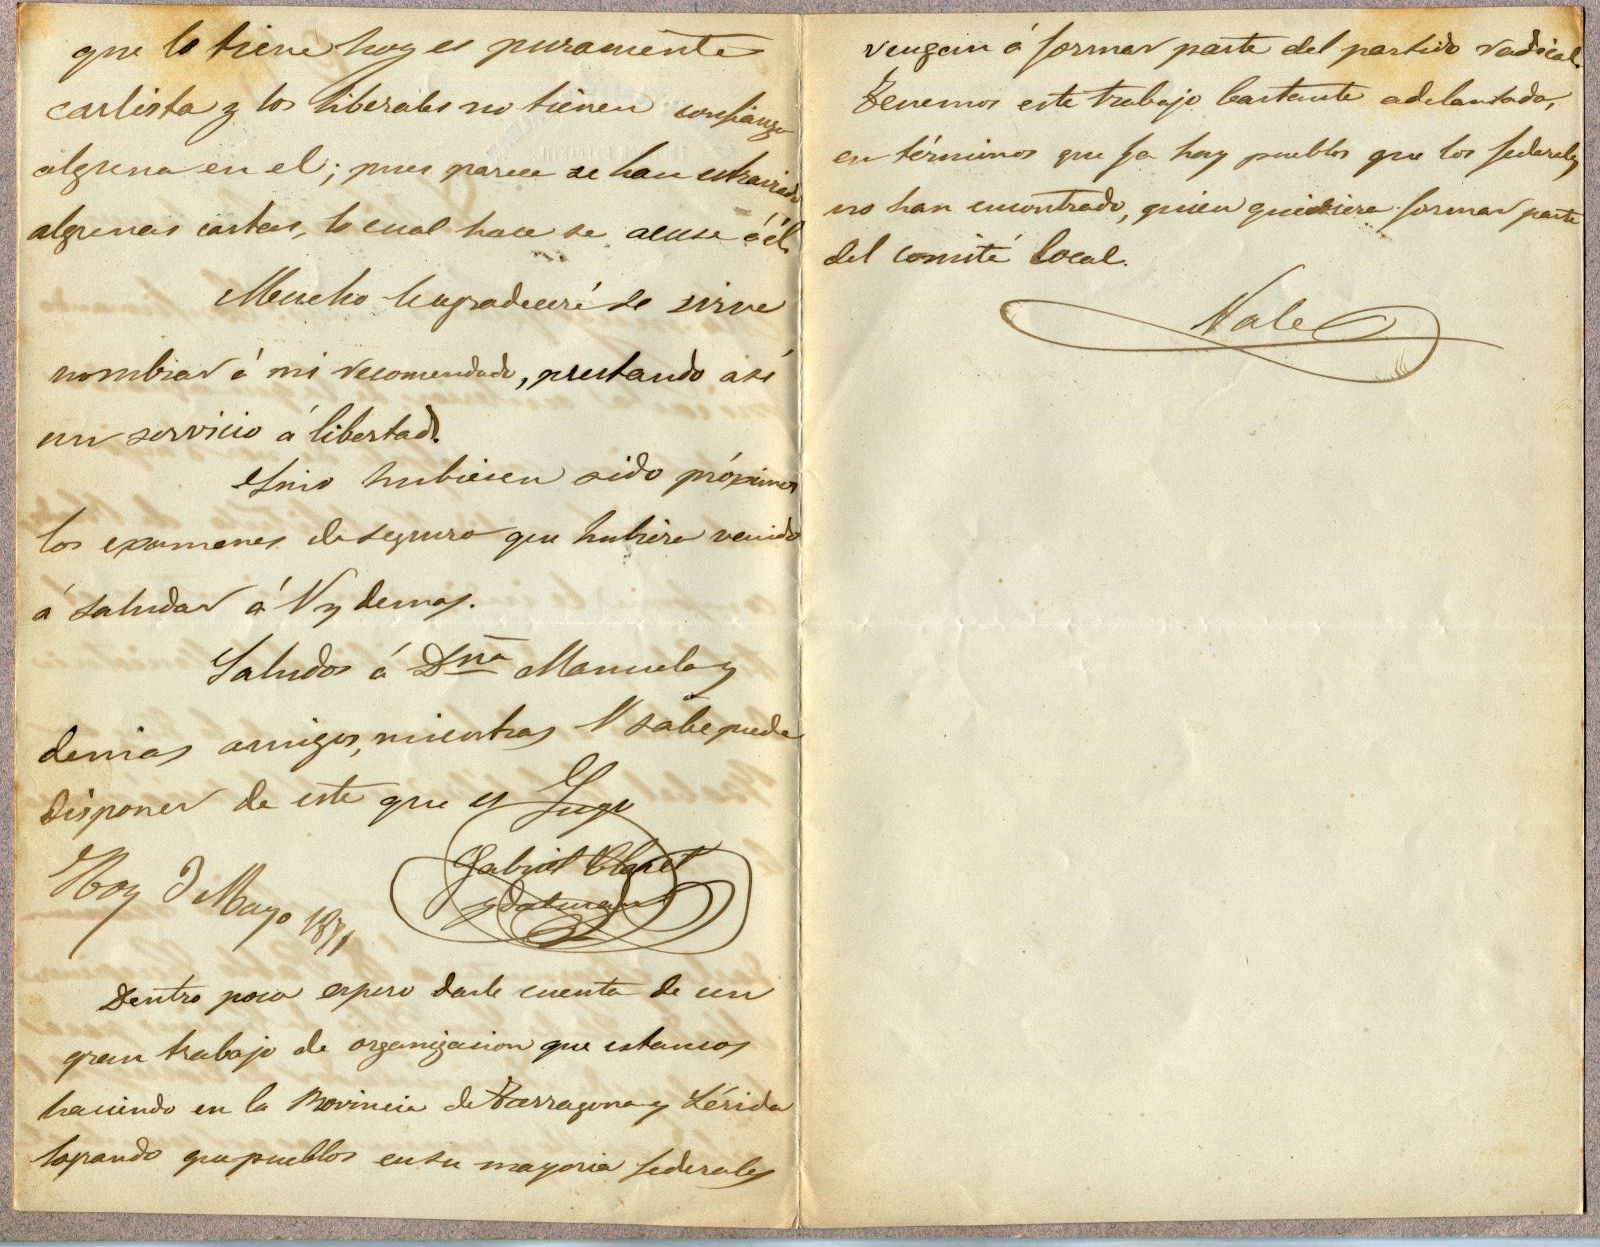 que lo tiene hoy es puramente
carlista y los liberales no tienen confianza
alguna en el; pues parece se han estraviado
algunas cartas, lo cual hace se acuse á él.
Mucho le agradeceré se sirva
nombrar á mi recomendado, prestando asi
un servicio á libertad.
Sino hubiesen sido próximos
los examenes de seguro que hubiera venido
á saludar á V y demas.
Saludos á Dña Manuela y
demas amigos, mientras V sabe puede
disponer de este que es Suyo
Gabriel Claret
y
Hoy 3 Mayo 1871
Dentro poco espero darle cuenta de un
gran trabajo de organizacion que estamos
haciendo en la Provincia de Tarragona y Lérida
logrando que pueblos en su mayoria federales
vengan á formar parte del partido radical.
Tenemos este trabajo bastante adelantado,
en términos que ya hay pueblos que los federales
no han encontrado, quien quisiera formar parte
del comité local.
Vale